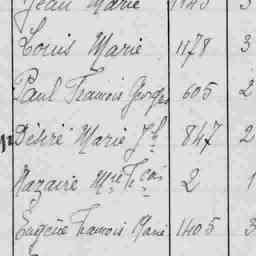 Jean Marie 1845 3
Louis Marie 1178 3
Paul François Georges 605 2
Désiré Marie Jh 847 2
Nazaire Mie Fcois 2 1
Eugène François Marie 1405 3